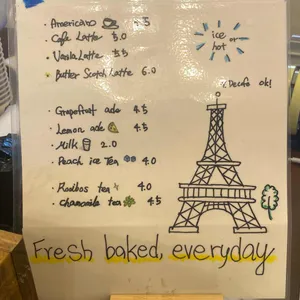 · Americano 4.5
· Cafe Latte 5.0
· Vanila Latte 5.5
· Butter Scotch Latte 6.0
ice or hot
Decafe ok!
· Grapefruit ade 4.5
· Lemon ade 4.5
· Milk 2.0
· Peach ice Tea 4.0
· Rooibos tea 4.0
· Chamomile tea 4.5
Fresh baked, everyday